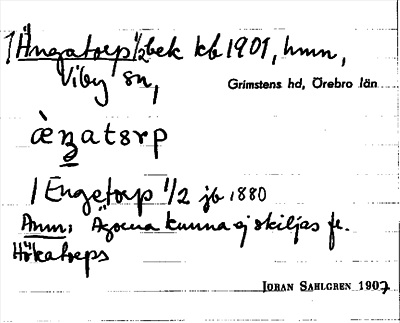 Ängatorp 1/2 bek kb 1901, hmn,
Viby sn,
Grimstens hd, Örebro län
Engetorp 1/2 jb 1880
Anm. Ägorna kunna ej skiljas fr.
Hökatorps
JORAN SAHLGREN 1907